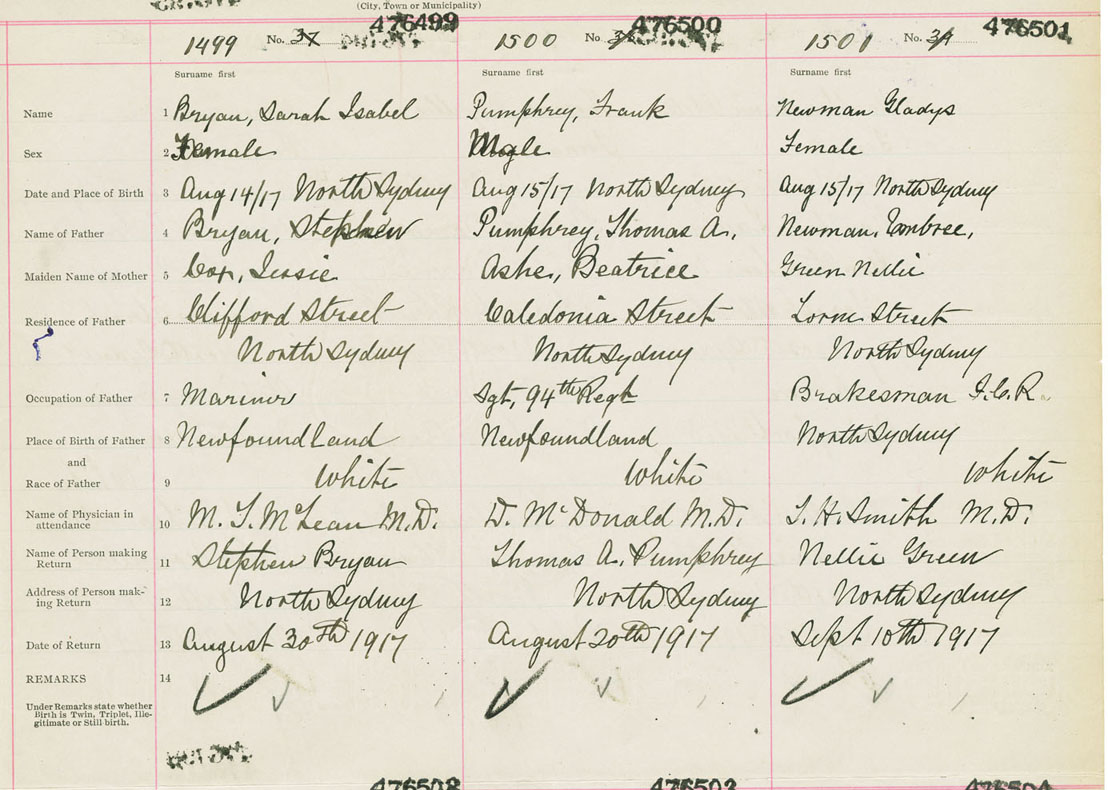 (City, Town or Municipality)
476499 476500 476501
1499 No. 37 1500 No. 1501 No.
Surname first Surname first Surname first
Name 1 Bryan, Sarah Isabel Pumphrey, Frank Newman Gladys
Sex 2 Female Male Female
Date and Place of Birth 3 Aug 14/17 North Sydney Aug 15/17 North Sydney Aug 15/17 North Sydney
Name of Father 4 Bryan, Stephen Pumphrey, Thomas A. Newman, Embree,
Maiden Name of Mother 5 Cox, Jessie Ashe, Beatrice Green Nellie
Residence of Father 6 Clifford Street Caledonia Street Lorne Street
North Sydney North Sydney North Sydney
Occupation of Father 7 Mariner Sgt, 94th Regt Brakesman I.C.R.
Place of Birth of Father 8 Newfoundland Newfoundland North Sydney
and
Race of Father 9 White White White
Name of Physician in
attendance 10 M. T. McLean M.D. D. McDonald M.D. J. H. Smith M.D.
Name of Person making
Return 11 Stephen Bryan Thomas A. Pumphrey Nellie Green
Address of Person mak-
ing Return 12 North Sydney North Sydney North Sydney
Date of Return 13 August 30th 1917 August 20th 1917 Sept 10th 1917
REMARKS 14
Under Remarks state whether
Birth is Twin, Triplet, Ille-
gitimate or Still-birth.